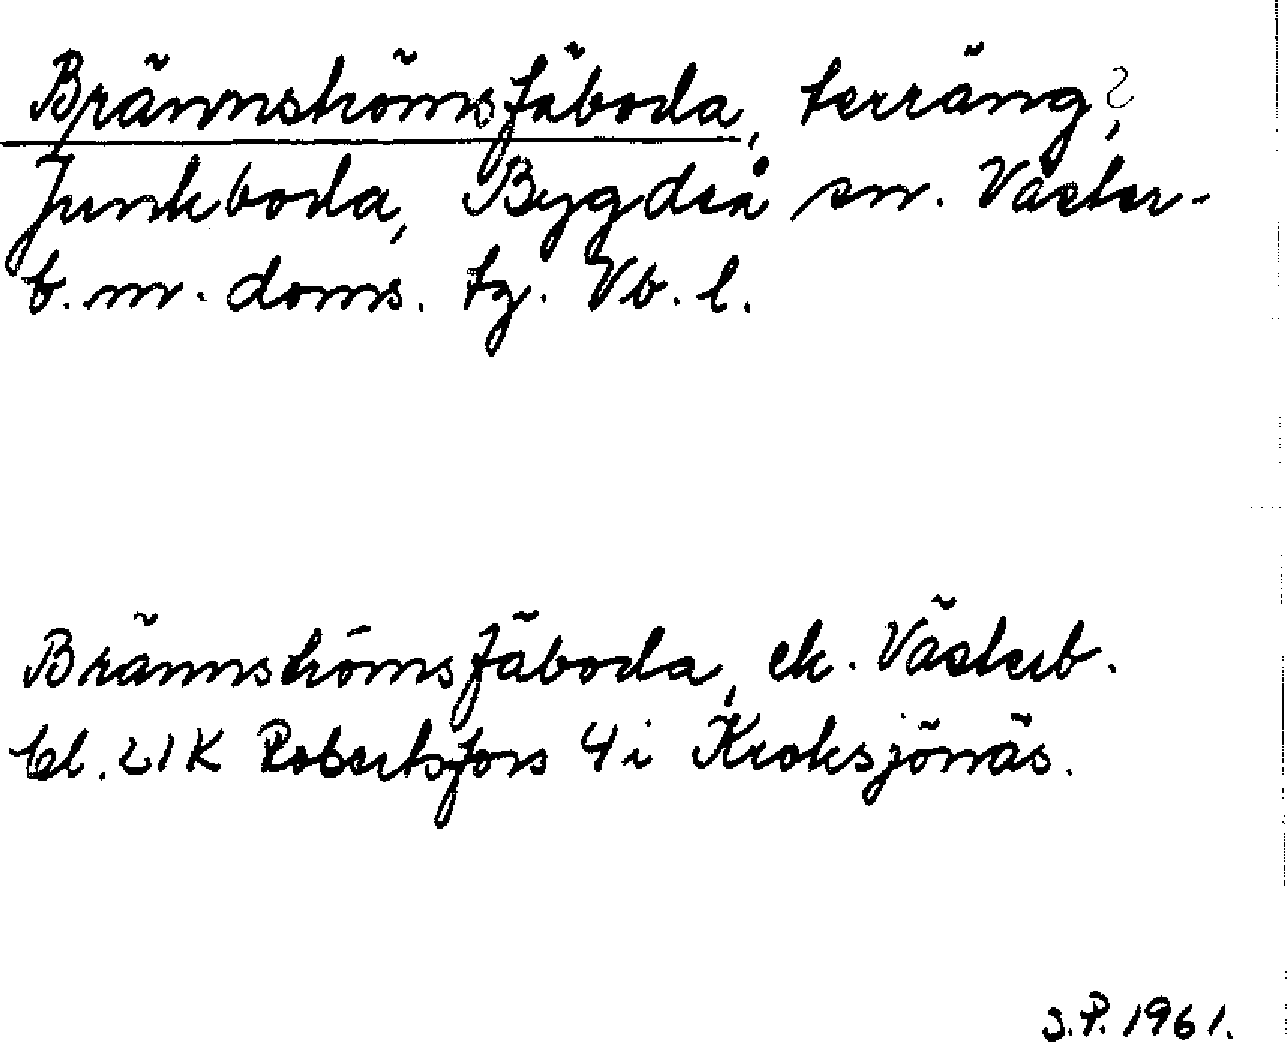 Brännströmsfäboda, terräng?,
Junkboda, Bygdeå sn. Väster-
b. m. doms. tg. Vb. l.
Brännströmsfäboda, ek. Västerb.
bl. 21K Robertsfors 4i Kroksjönäs.
S.P. 1961.